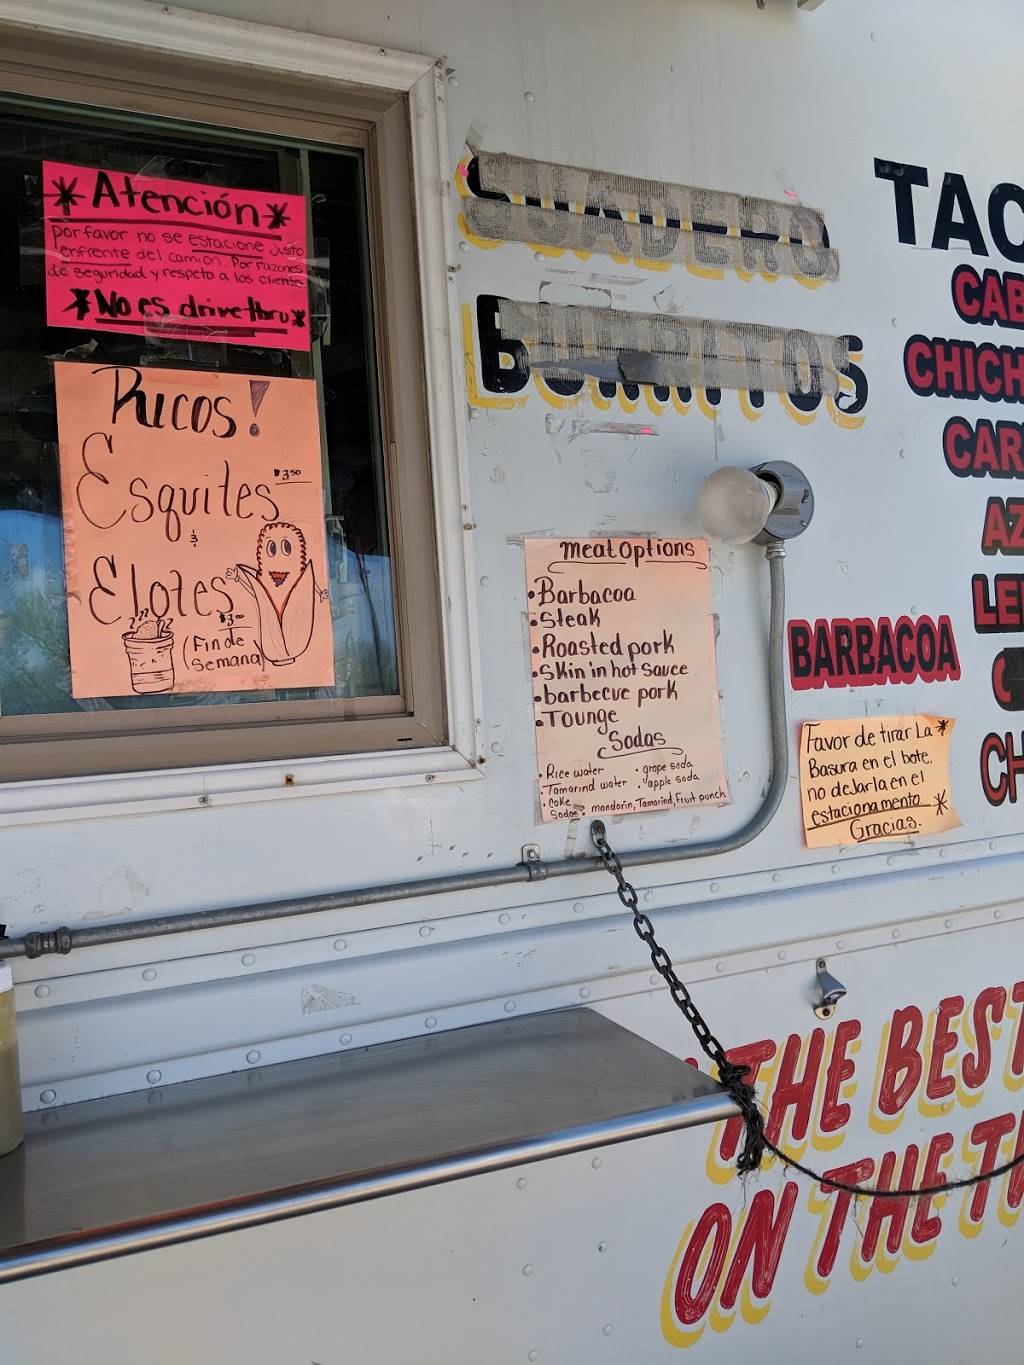 *Atención*
por favor no se estacione justo
enfrente del camion. Por razones
de seguridad y respeto a los cliente
*No es drive thru*
Ricos!
Esquites $3.50
&
Elotes $3.00
(Fin de
Semana)
SUADERO
BURRITOS
Meat Options
•Barbacoa
•Steak
•Roasted pork
•Skin in hot sauce
•barbecue pork
•Tounge
Sodas
•Rice water •grape soda
•Tamarind water •apple soda
•Coke
Sodas• mandarin, Tamarind, Fruit punch
TACO
CAB
CHICH
CAR
AZ
LE
C
CH
BARBACOA
Favor de tirar La *
Basura en el bote,
no deJarla en el
estacionamento *
Gracias.
THE BEST
ON THE T